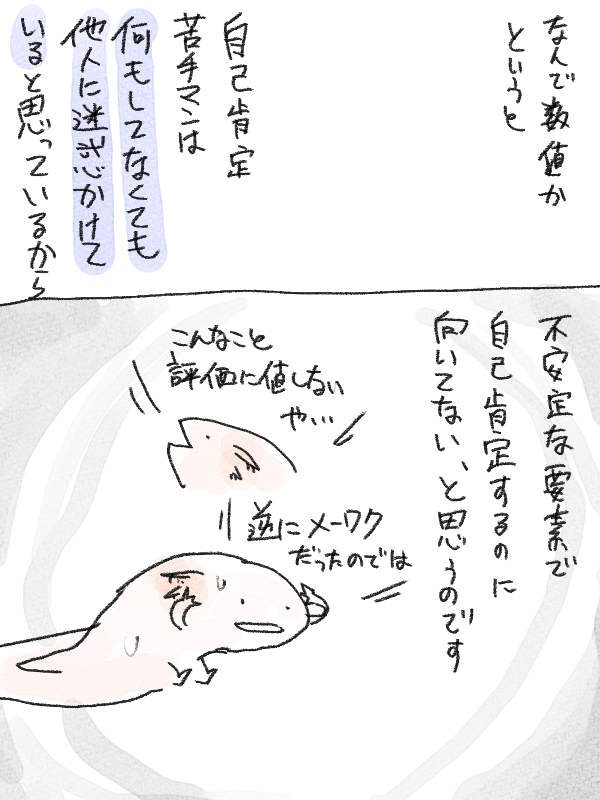 なんで数値か
というと
自己肯定
苦手マンは
何もしてなくても
他人に迷惑かけて
いると思っているから
不安定な要素で
自己肯定するのに
向いてない、と思うのです
こんなこと
評価に値しない
や…
逆にメーワク
だったのでは